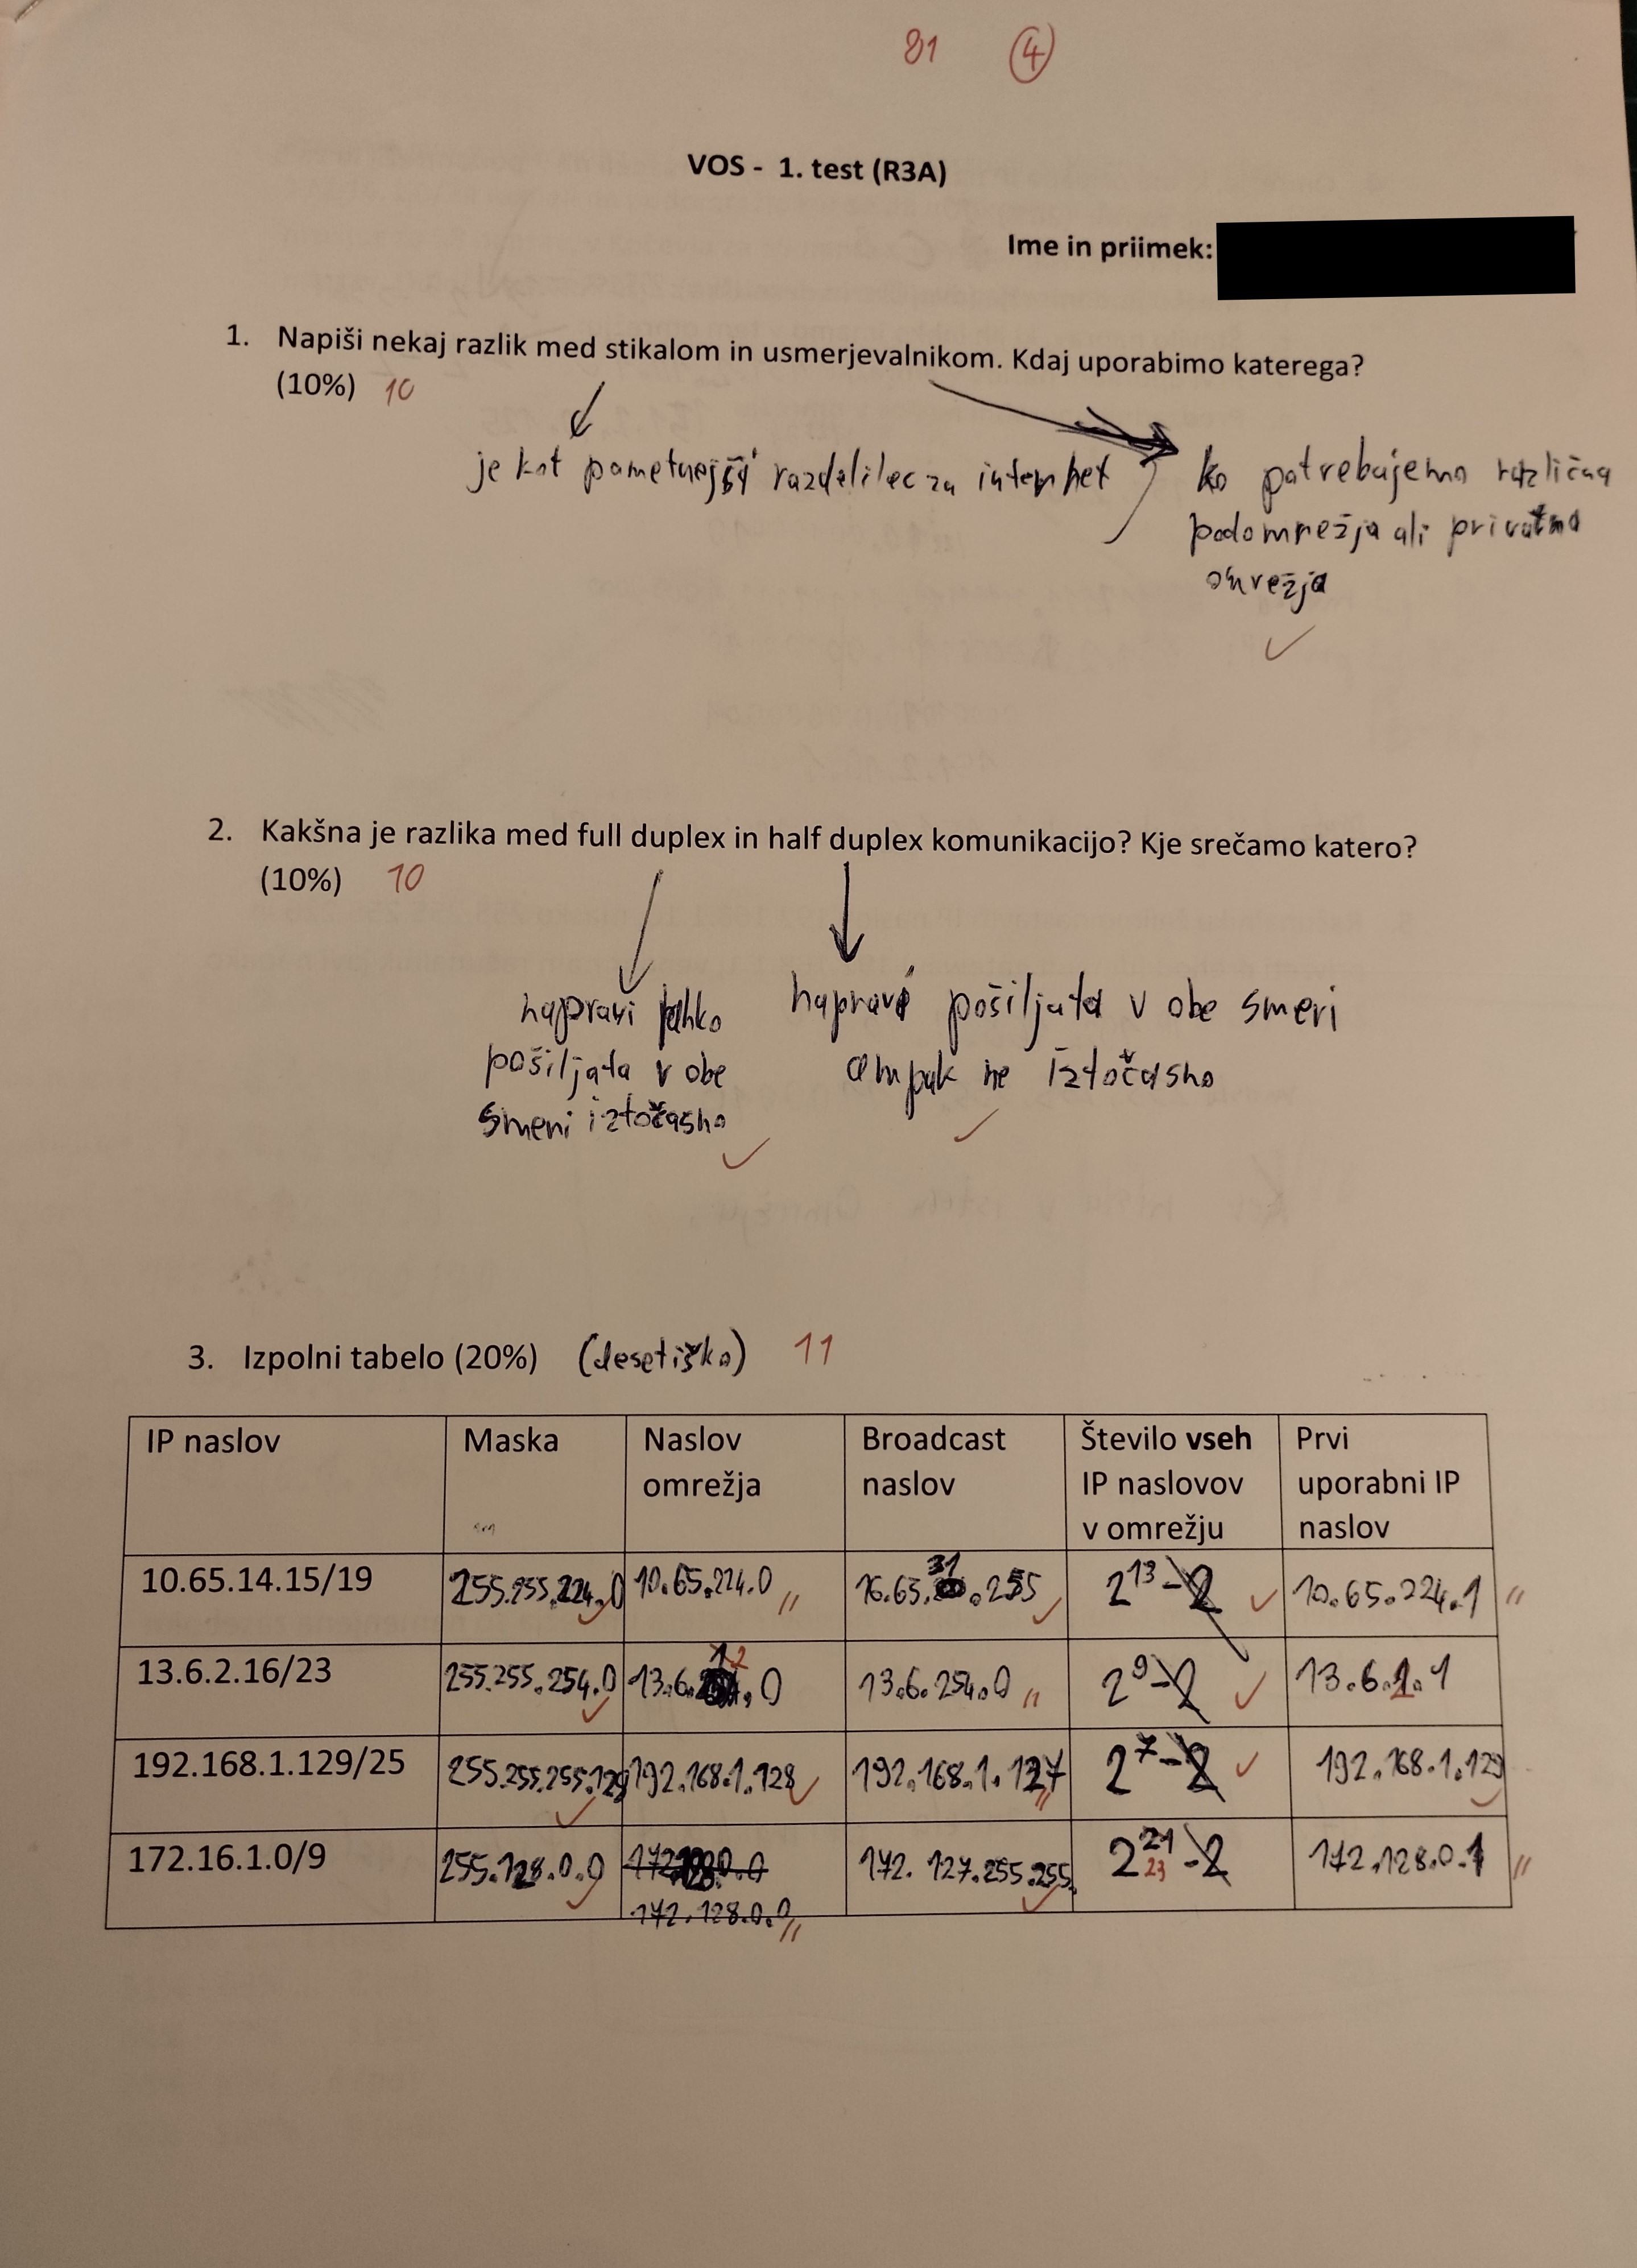 81 4
VOS - 1. test (R3A)
Ime in priimek:
1. Napiši nekaj razlik med stikalom in usmerjevalnikom. Kdaj uporabimo katerega?
(10%) 10
je kot pametnejši razdelilec za internet
ko potrebujemo različna
podomrežja ali privatna
omrežja
2. Kakšna je razlika med full duplex in half duplex komunikacijo? Kje srečamo katero?
(10%) 10
napravi lahko
pošiljata v obe
smeri iztočasno
napravi pošiljata v obe smeri
ampak ne iztočasno
3. Izpolni tabelo (20%) (desetiško) 11
IP naslov Maska Naslov omrežja Broadcast naslov Število vseh IP naslovov v omrežju Prvi uporabni IP naslov
10.65.14.15/19 255.255.224.0 10.65.224.0 10.65.31.255 2¹³-2 10.65.224.1
13.6.2.16/23 255.255.254.0 13.6.1.0 2 13.6.254.0 2⁹-2 13.6.1.1
192.168.1.129/25 255.255.255.128 192.168.1.128 192.168.1.127 2⁷-2 192.168.1.129
172.16.1.0/9 255.128.0.0 172.128.0.0 172.127.255.255 2²¹-2 23 172.128.0.1